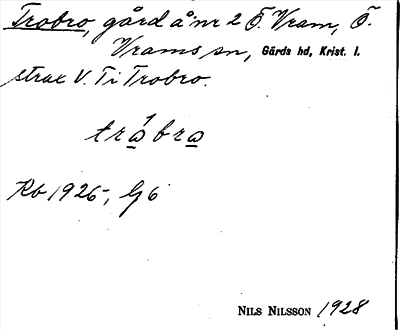 Trobro, gård å nr 2 Ö. Vram, Ö.
Vrams sn, Gärds hd, Krist. l.
strax V. Ti Trobro.
tra̲bra̲
Rb 1926, G 6
NILS NILSSON 1928